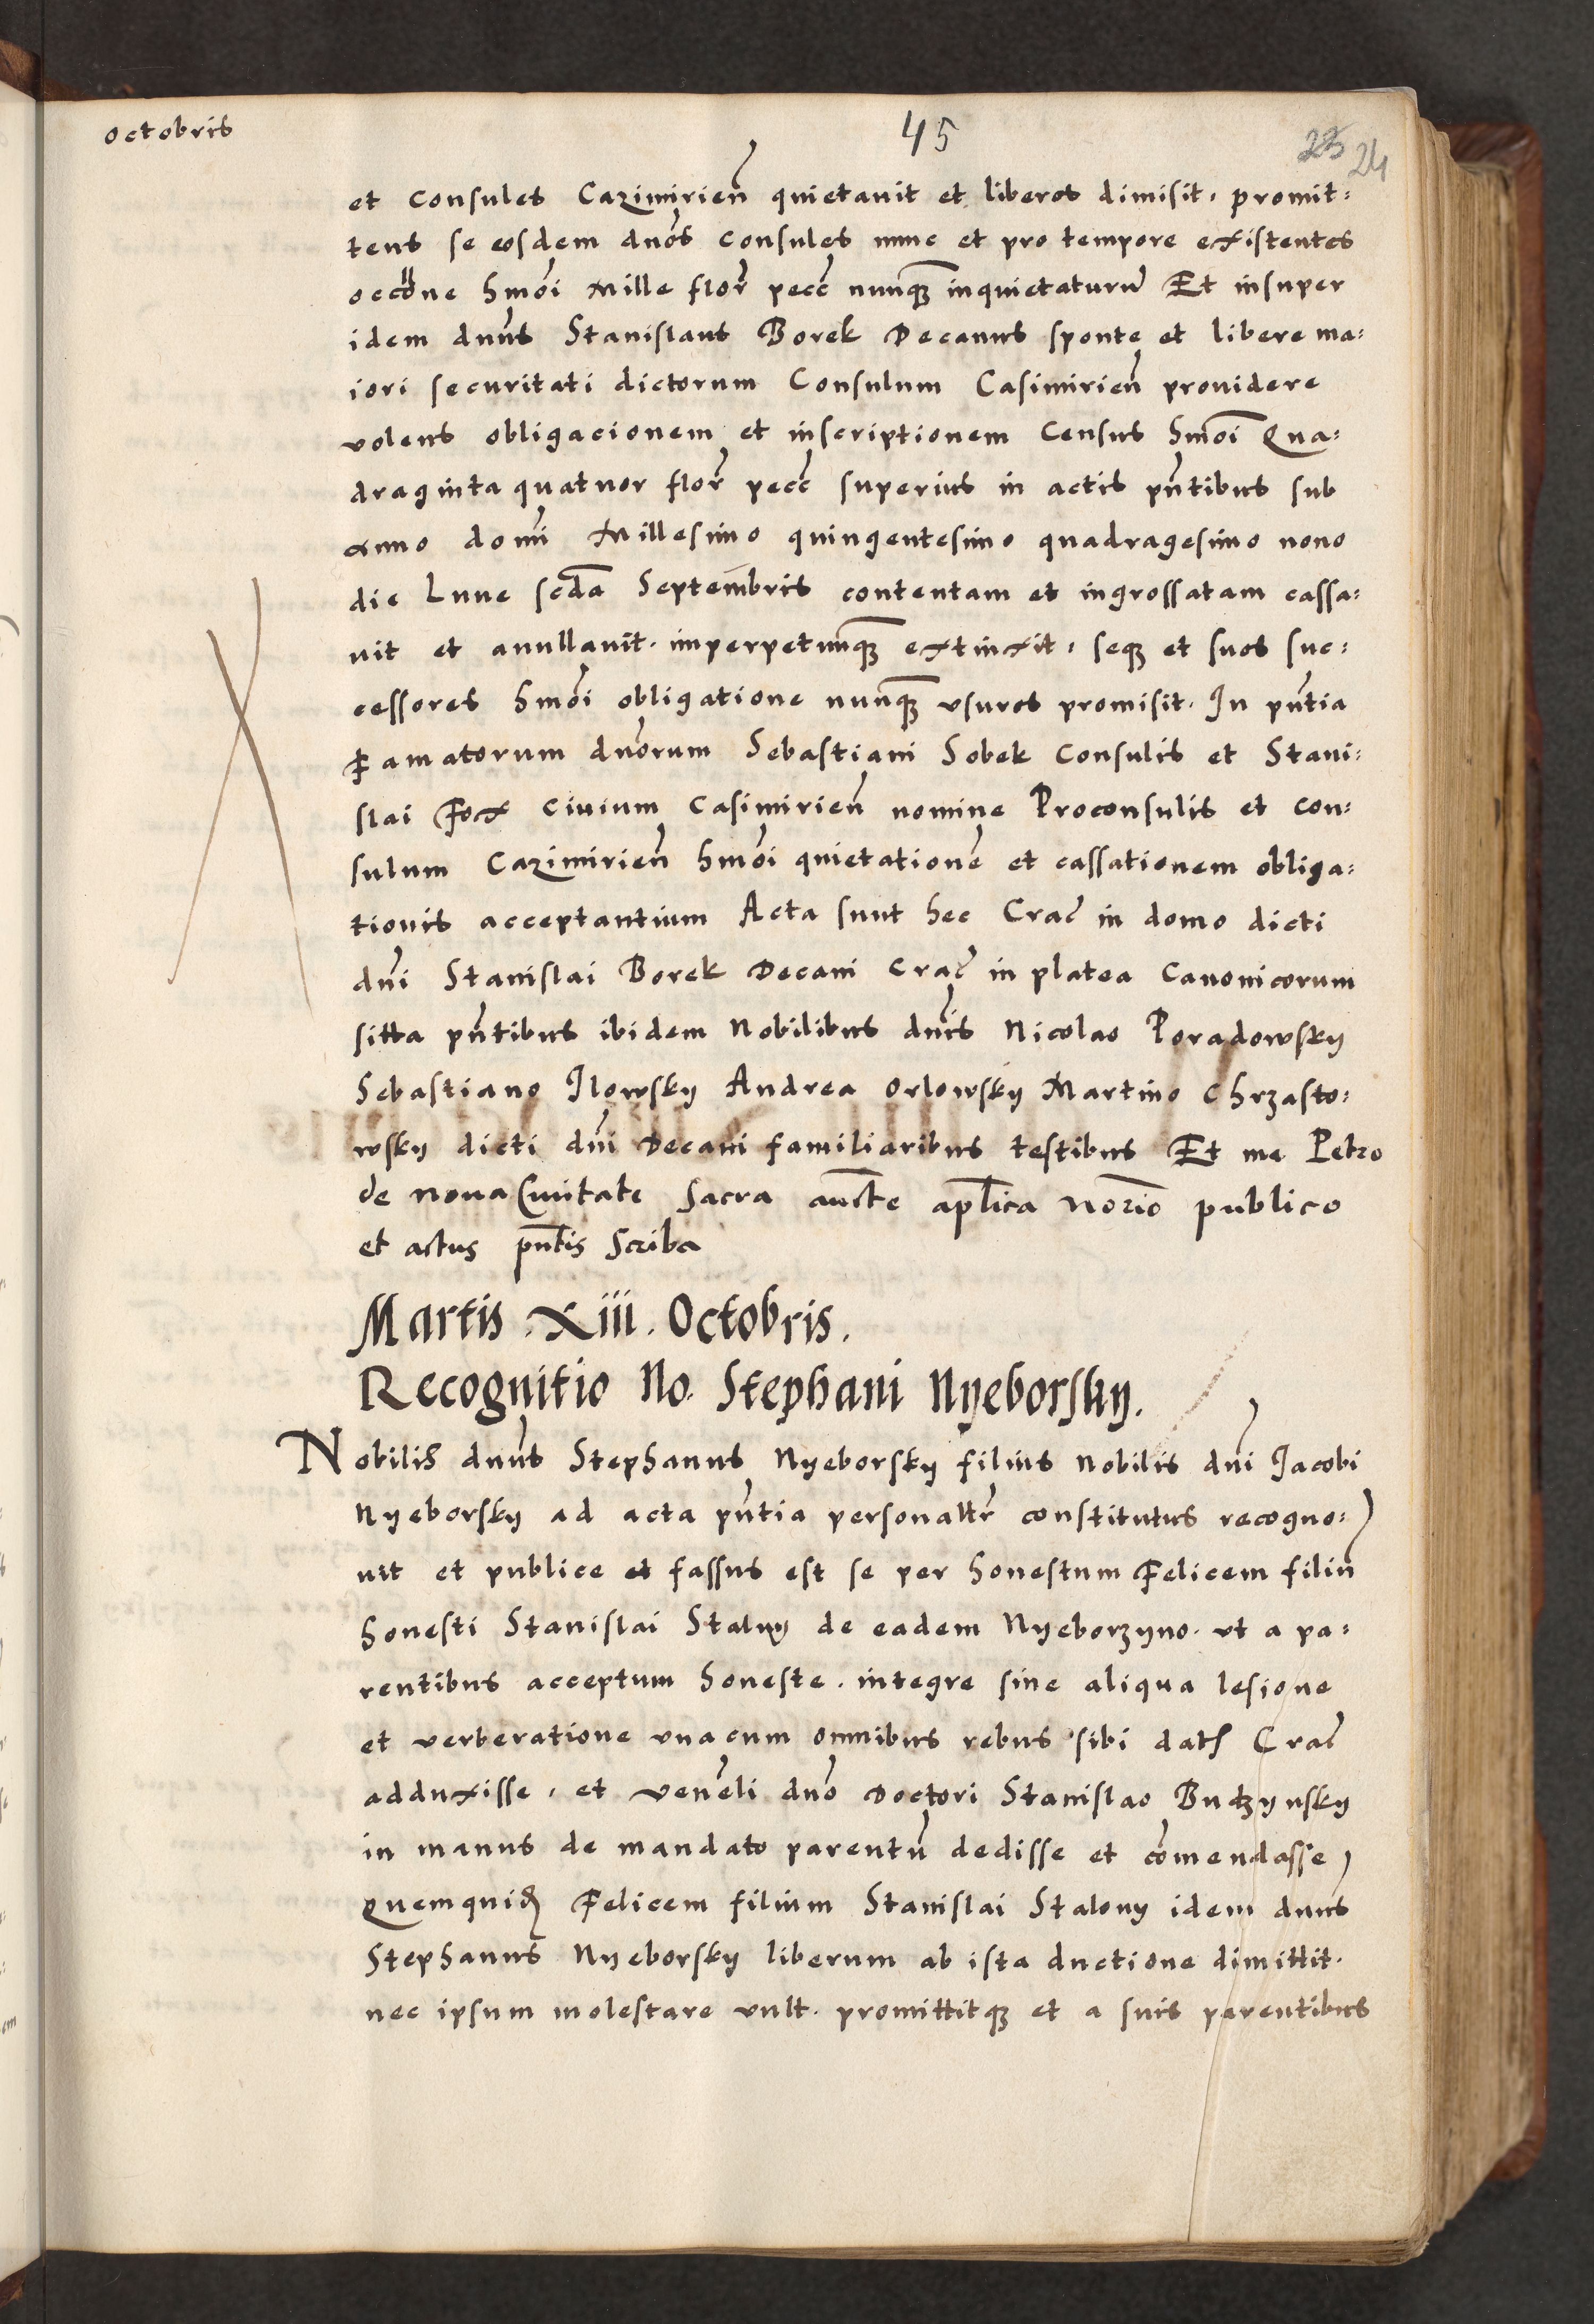 octobris
45
25 24
et Consules Cazimirien̄ quietauit et liberos dimisit. promit:
tens se eosdem dn̄os Consules nunc et pro tempore existentes
occōne hmōi Mille flor̄ pecc̄ nunqꝫ inquietaturū Et insuper
idem dnūs Stanislaus Borek Decanus sponte et libere ma:
iori securitati dictorum Consulum Casimirien̄ prouidere
volens obligacionem et inscriptionem Census hmōi Qua:
draginta quatuor flor̄ pecc̄ superius in actis pn̄tibus sub
anno domī Millesimo quingentesimo quadragesimo nono
die Lune scdā Septembris contentam et ingrossatam cassa:
uit et anullauit. imperpetuūqꝫ extinxit. seqꝫ et suos suc:
cessores hmōi obligatione nunqꝫ vsuros promisit. In pn̄tia
Famatorum dnōrum Sebastiani Sobek Consulis et Stani:
slai Fox Ciuium Casimirien̄ nomine Proconsulis et Con:
sulum Cazimirien̄ hmōi quietationē et cassationem obliga:
tionis acceptantium Acta sunt hec Crac̄ in domo dicti
dn̄i Stanislai Borek Decani Crac̄ in platea Canonicorum
sitta pn̄tibus ibidem Nobilibus dn̄is Nicolao Poradowsky
Sebastiano Ilowsky Andrea Orlowsky Martino Chrzasto:
wsky dicti dn̄i Decani familiaribus testibus Et me Petro
de noua Ciuitate Sacra auctē aplīca norīo publico
et actus pn̄tis Scriba
Martis . xiii . Octobris.
Recognitio No. Stephani Nyeborsky.
Nobilis dnūs Stephanus Nyeborsky filius Nobilis dn̄i Jacobi
Nyeborsky ad acta pn̄tia personaltr̄ constitutus recogno:
uit et publice et fassus est se per honestum Felicem filiū
honesti Stanislai Stalny de eadem Nyeborzyno. vt a pa:
rentibus acceptum honeste. integre sine aliqua lesione
et verberatione vna cum omnibus rebus sibi dat̄ Crac̄
adduxisse. et Venēli dn̄o Doctori Stanislao Budzynsky
in manus de mandato parentū dedisse et cōmendasse
Quemquid̄ Felicem filium Stanislai Stalony idem dnūs
Stephanus Nyeborsky liberum ab ista ductione dimittit.
nec ipsum molestare vult. promittitqꝫ et a suis parentibus